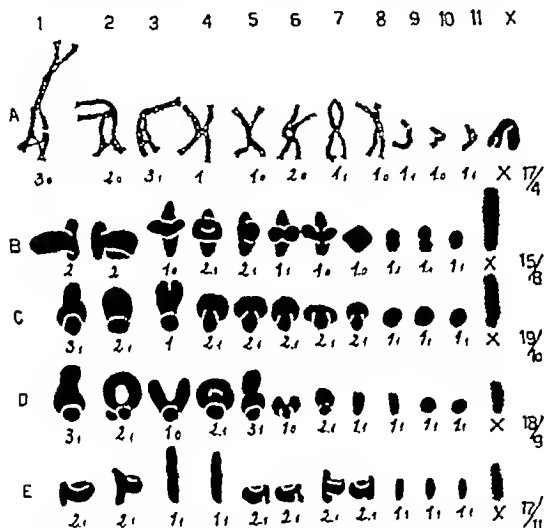 1 2 3 4 5 6 7 8 9 10 11 X
A
3₀ 2₀ 3₁ 1 1₀ 2₀ 1₁ 1₀ 1₁ 1₀ 1₁ X 17/4
B
2 2 1₀ 2₁ 2₁ 1₁ 1₀ 1₀ 1₁ 1₁ 1₁ X 15/8
C
3₁ 2₁ 1 2₁ 2₁ 2₁ 2₁ 2₁ 1₁ 1₁ 1₁ X 19/10
D
3₁ 2₁ 1₀ 2₁ 3₁ 1₀ 2₁ 1₁ 1₁ 1₁ 1₁ X 18/9
E
2₁ 2₁ 1₁ 1₁ 2₁ 2₁ 2₁ 2₁ 1₁ 1₁ 1₁ X 17/11